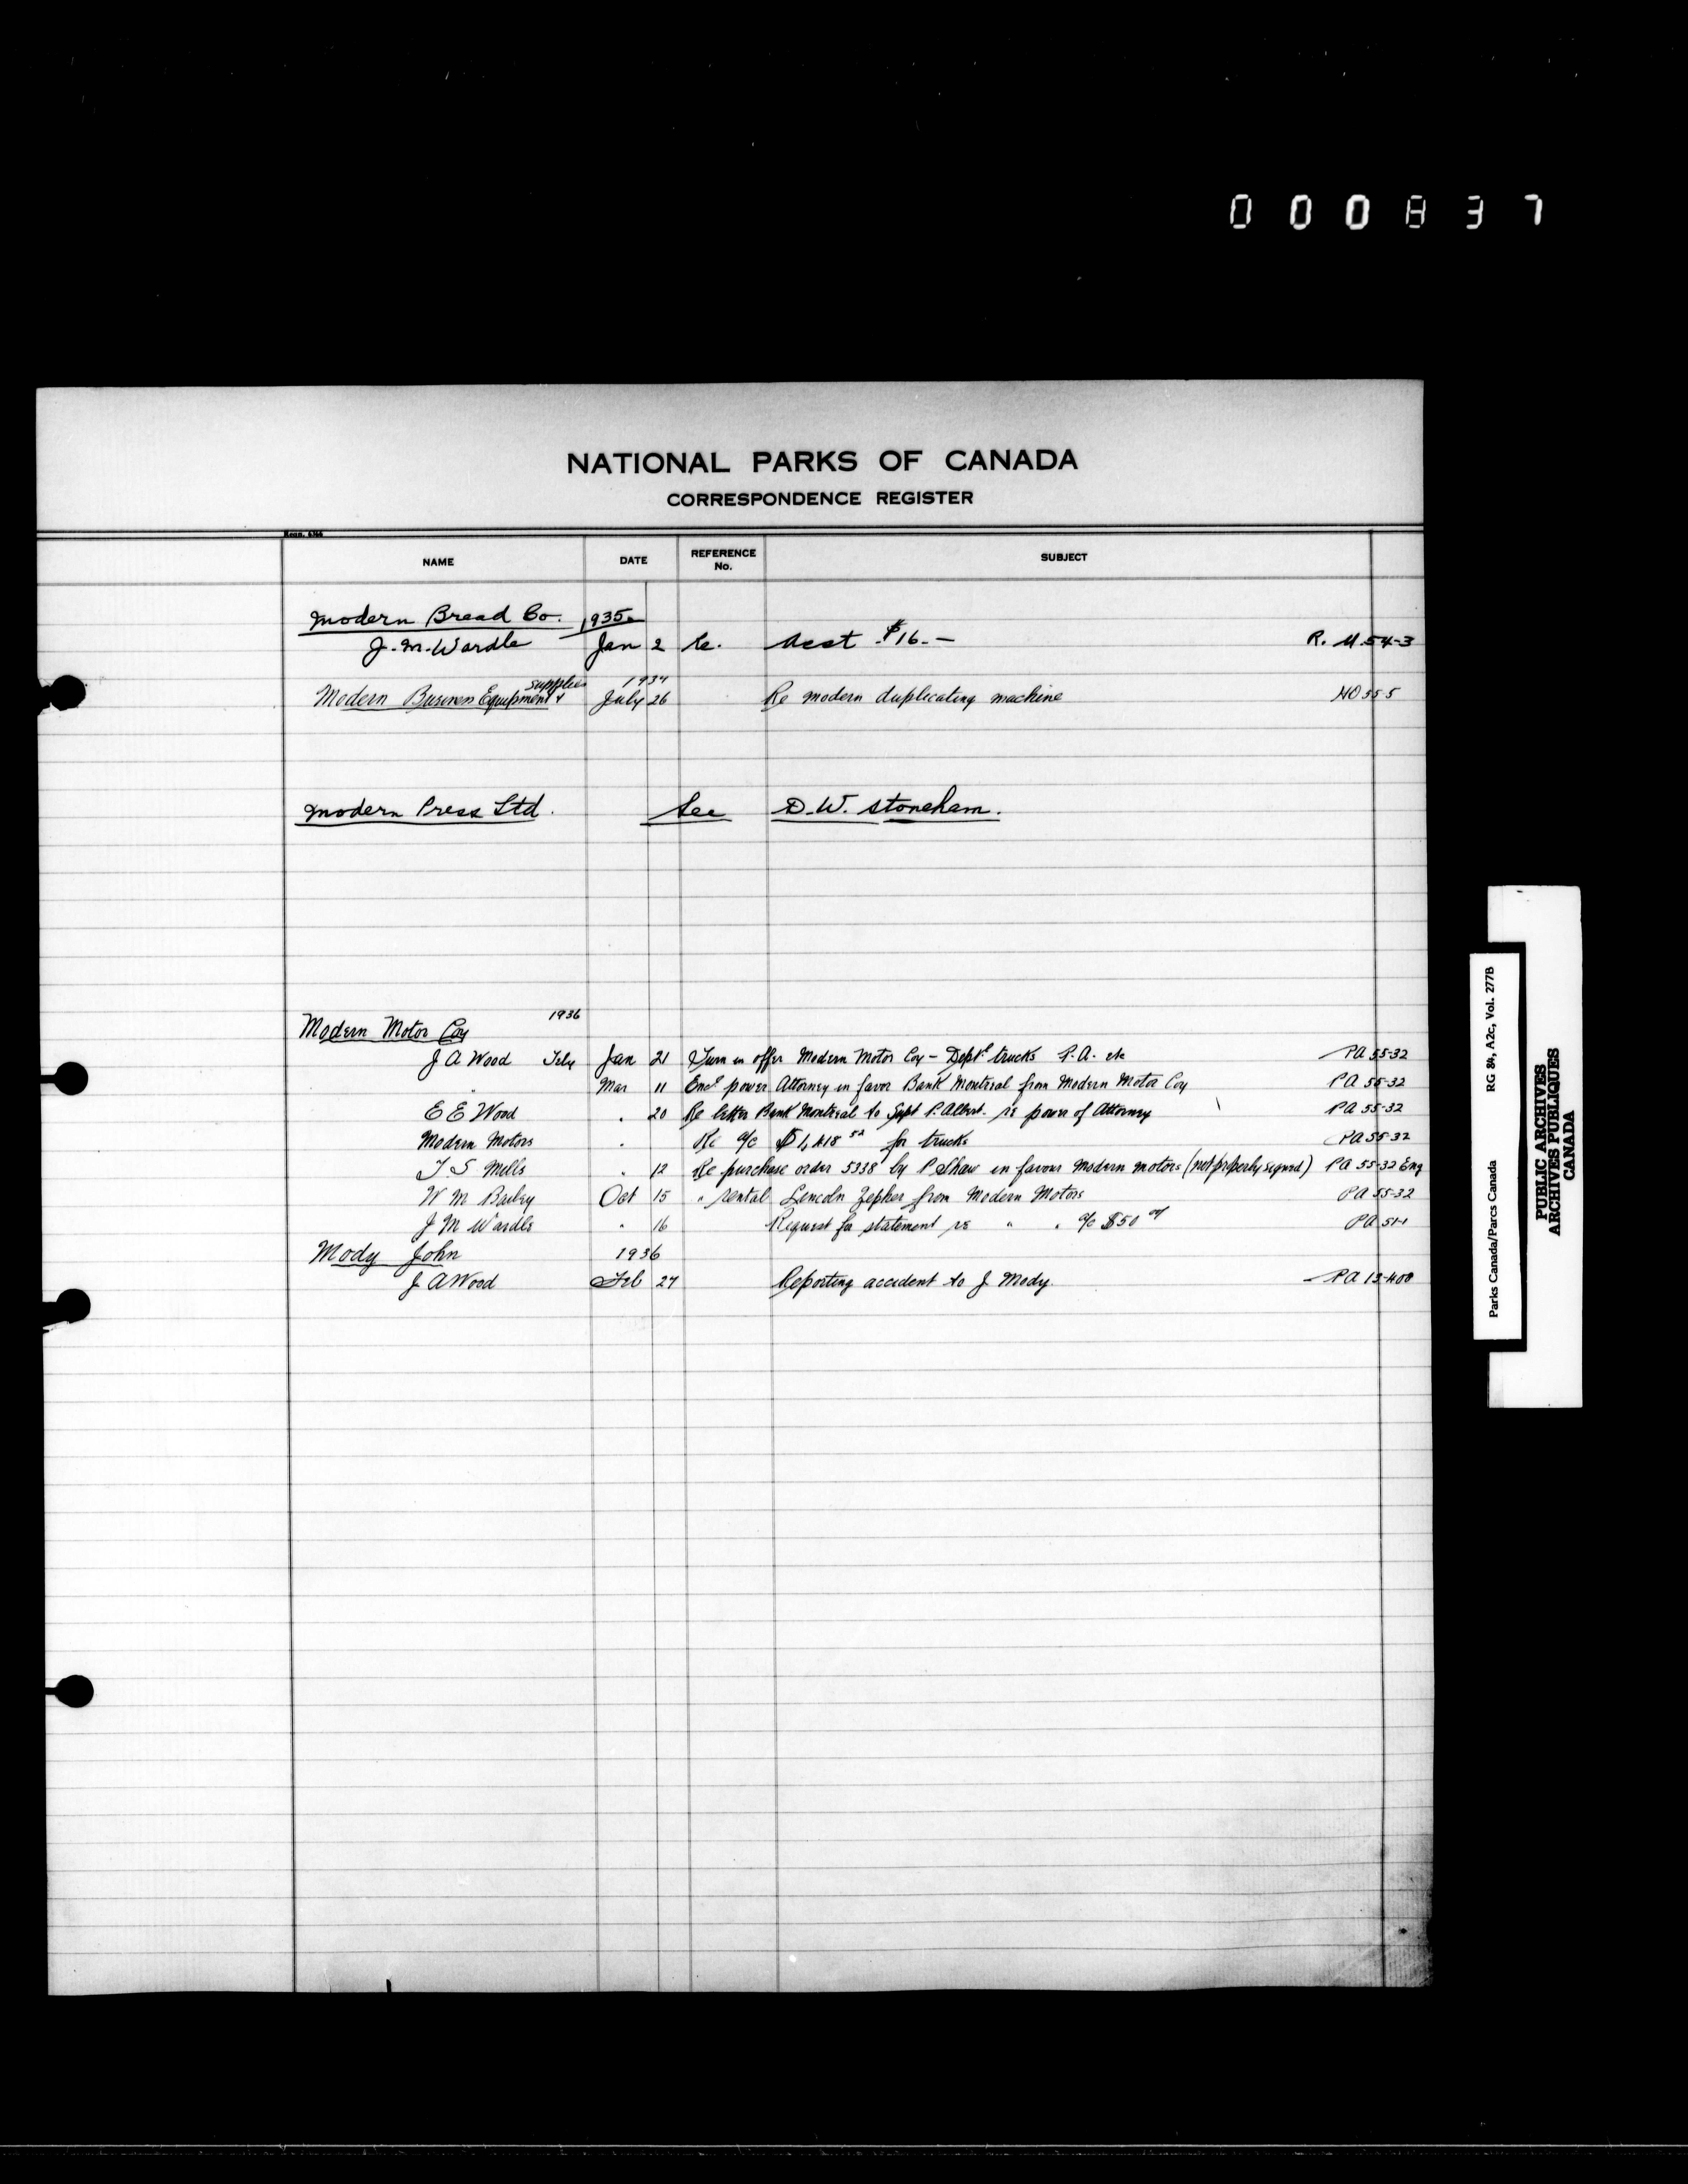 000837
NATIONAL PARKS OF CANADA
CORRESPONDENCE REGISTER
NAME DATE REFERENCE No. SUBJECT
Modern Bread Co. 1935
J. M. Wardle Jan 2 Re. Acct $16.— R.M. 54-3
Supplies 1937
Modern Business Equipment & July 26 Re modern duplicating machine HO 55-5
Modern Press Ltd. See D.W. Stoneham.
1936
Modern Motor Coy
J A Wood Jan 21 Turn in offer Modern Motor Coy – Deptl trucks P.A. etc PA 55-32
" Mar 11 Encl power Attorney in favor Bank Montreal from Modern Motor Coy PA 55-32
E E Wood " 20 Re letter Bank Montreal to Supt P. Albert. re power of Attorney PA 55-32
Modern Motors " Re a/c $1,418 52 for trucks PA 55-32
T S Mills " 12 Re purchase order 5338 by P Shaw in favour Modern motors (not properly signed) PA 55-32 Eng
W M Bailey Oct 15 " rental Lincoln Zepher from Modern Motors PA 55-32
J M Wardle " 16 Request for statement re " " a/c $50 PA 51-1
Mody John 1936
J A Wood Feb 27 Reporting accident to J Mody. PA 13-400
Parks Canada/Parcs Canada RG 84, A2c, Vol. 277B
PUBLIC ARCHIVES
ARCHIVES PUBLIQUES
CANADA